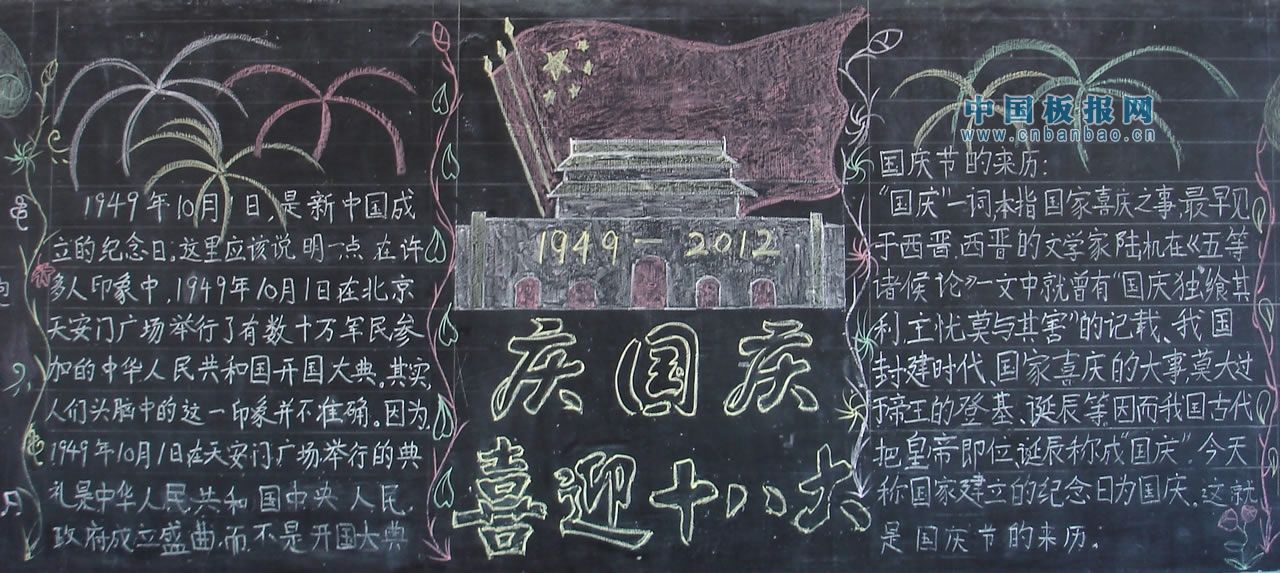 1949年10月1日,是新中国成
立的纪念日。这里应该说明一点,在许
多人印象中,1949年10月1日在北京
天安门广场举行了有数十万军民参
加的中华人民共和国开国大典。其实,
人们头脑中的这一印象并不准确。因为,
1949年10月1日在天安门广场举行的典
礼是中华人民共和国中央人民
政府成立盛曲,而不是开国大典
1949—2012
庆国庆
喜迎十八大
中国板报网
www.cnbanbao.cn
国庆节的来历:
“国庆”一词本指国家喜庆之事,最早见
于西晋。西晋的文学家陆机在《五等
诸候论》一文中就曾有“国庆独飨其
利,主忧莫与其害”的记载、我国
封建时代、国家喜庆的大事,莫大过
于帝王的登基、诞辰等。因而我国古代
把皇帝即位、诞辰称成“国庆”。今天
称国家建立的纪念日为国庆。这就
是国庆节的来历。